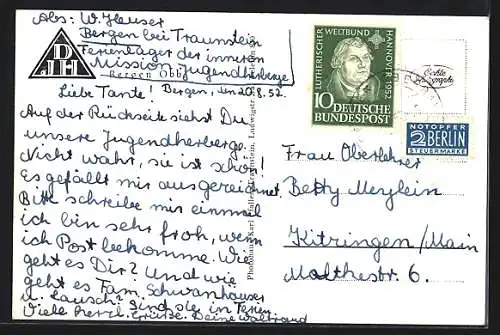 Abs: W. Heuser
Bergen bei Traunstein
Ferienlager der inneren
Mission Jugendherberge
DJH
Bergen Obb.
Liebe Tante! Bergen, den 20.8.52.
Auf der Rückseite siehst Du
unsere Jugendherberge.
Nicht wahr, sie ist schön!
Es gefällt mir ausgezeichnet.
Bitte schreibe mir einmal
ich bin sehr froh, wenn
ich Post bekomme. Wie
geht es Dir? Und wie
geht es Fam. Schwanhäuser
u. Rausch? Sind sie in Ferien.
Viele herzl. Grüße. Deine Waltraud
LUTHERISCHER WELTBUND
HANNOVER 1952
10 DEUTSCHE
BUNDESPOST
Echte
NOTOPFER
2 BERLIN
STEUERMARKE
Frau Oberlehrer
Betty Merzlein
Kitzingen/Main
Malthestr. 6.